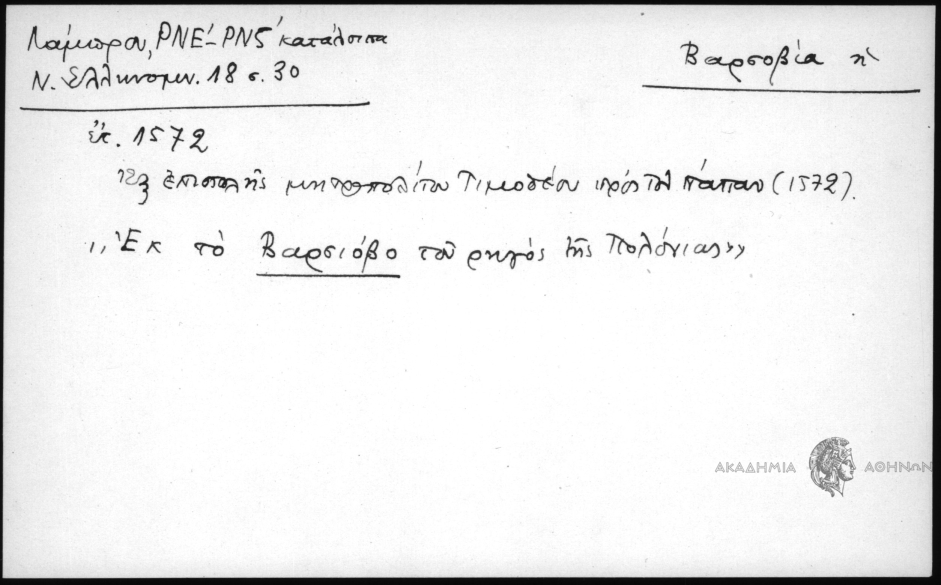 Λάμπρου, ΡΝΕ΄-ΡΝϚ΄ κατάλοιπα
Ν. Ἑλληνομν. 18 σ. 30
Βαρσοβία ἡ
ἔτ. 1572
Ἐξ ἐπιστολῆς μητροπολίτου Τιμοθέου πρὸς τὸν πάπαν (1572).
,,Ἐκ τὸ Βαρσιόβο τοῦ ρηγός τῆς Πολόνιας»
ΑΚΑΔΗΜΙΑ ΑΘΗΝΩΝ